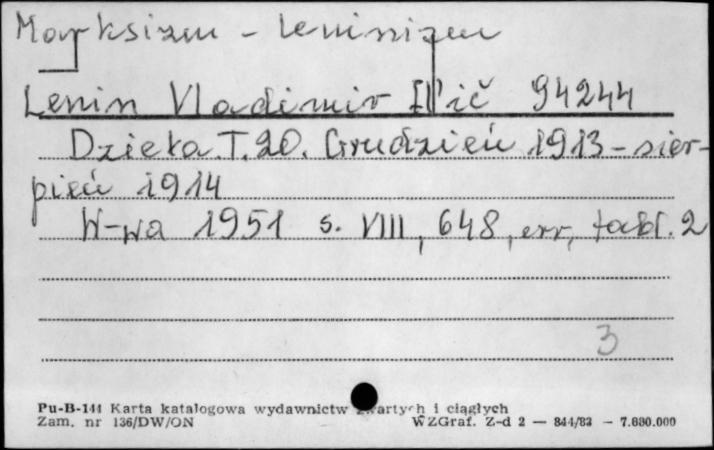 Marksizm - leninizm
Lenin Vladimir Il'ič 94244
Dzieła. T. 20. Grudzień 1913 - sier-
pień 1914
W-wa 1951 s. VIII, 648, err, tabl. 2
3
Pu-B-144 Karta katalogowa wydawnictw zwartych i ciągłych
Zam. nr 136/DW/ON WZGraf. Z-d 2 — 844/83 — 7.680.000